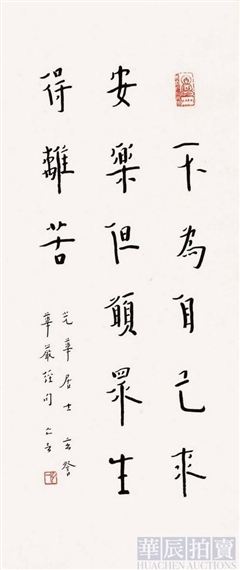 不為自己求
安樂但願眾生
得離苦
華嚴經句
華辰拍賣
HUACHEN AUCTIONS